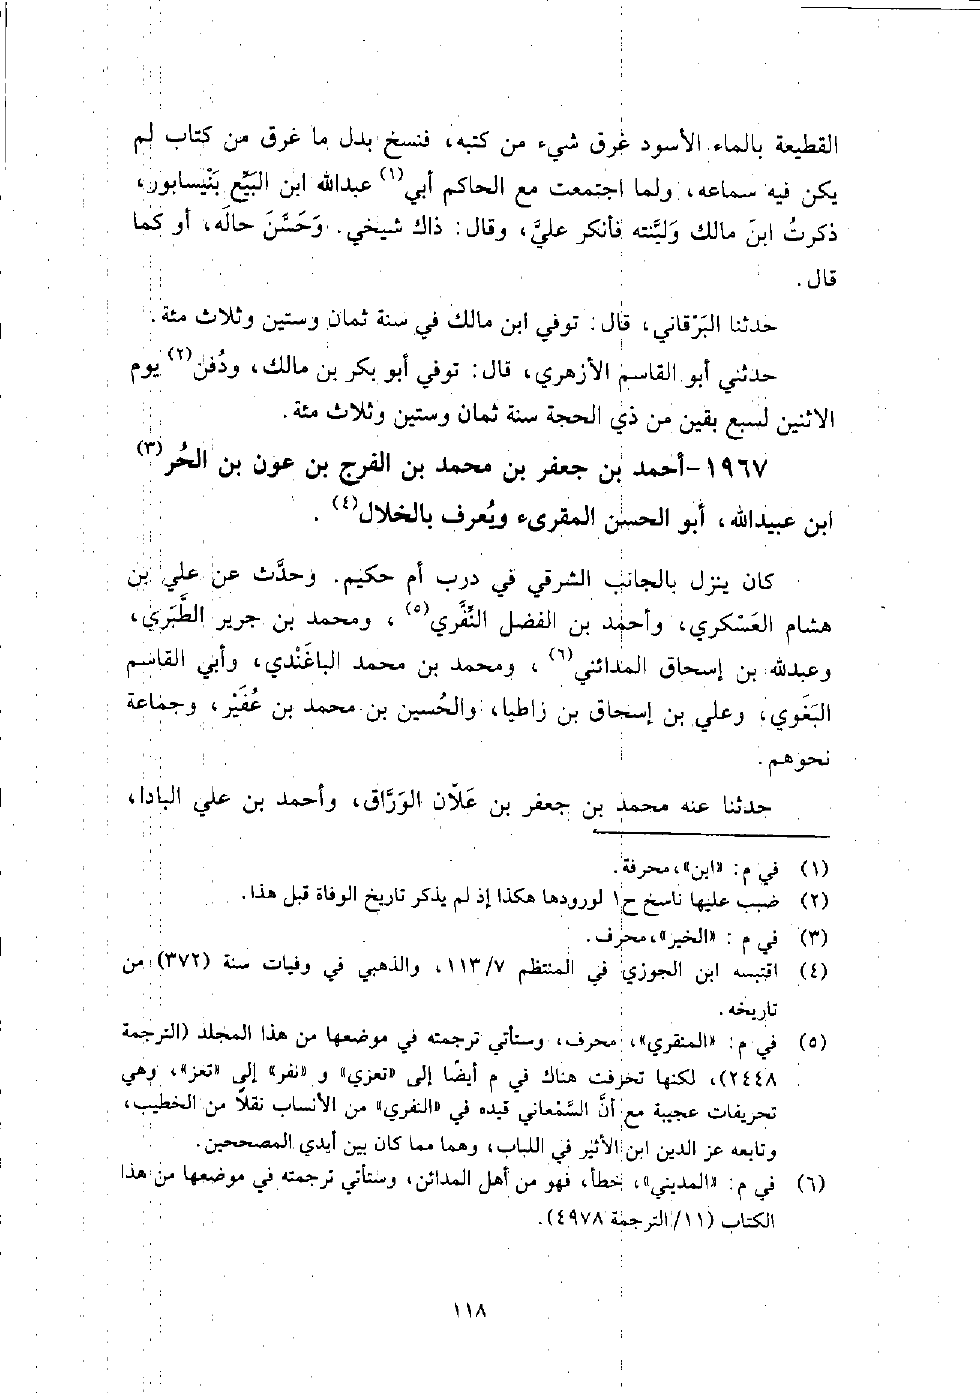 القطيعة بالماء الأسود غرق شيء من كتبه، فنسخ بدل ما غرق من كتاب لم
يكن فيه سماعه، ولما اجتمعت مع الحاكم أبي(١) عبدالله ابن البَيِّع بنَيْسابور،
ذكرتُ ابنَ مالك وَليَّنته فأنكر عليَّ، وقال: ذاك شيخي. وَحَسَّنَ حالَه، أو كما
قال.
حدثنا البَرْقاني، قال: توفي ابن مالك في سنة ثمان وستين وثلاث مئة.
حدثني أبو القاسم الأزهري، قال: توفي أبو بكر بن مالك، ودُفن(٢) يوم
الاثنين لسبع بقين من ذي الحجة سنة ثمان وستين وثلاث مئة.
١٩٦٧-أحمد بن جعفر بن محمد بن الفرج بن عون بن الحُر(٣)
ابن عبيدالله، أبو الحسن المقرىء ويُعرف بالخلال(٤).
كان ينزل بالجانب الشرقي في درب أم حكيم. وحدَّث عن علي بن
هشام العَسْكري، وأحمد بن الفضل النِّفَّري(٥)، ومحمد بن جرير الطَّبَري،
وعبدلله بن إسحاق المدائني(٦)، ومحمد بن محمد الباغَنْدي، وأبي القاسم
البَغَوي، وعلي بن إسحاق بن زاطيا، والحُسين بن محمد بن عُفَيْر، وجماعة
نحوهم.
حدثنا عنه محمد بن جعفر بن عَلّان الوَرَّاق، وأحمد بن علي البادا،
(١) في م: «ابن»، محرفة.
(٢) ضبب عليها ناسخ ح١ لورودها هكذا إذ لم يذكر تاريخ الوفاة قبل هذا.
(٣) في م : «الخير»، محرف.
(٤) اقتبسه ابن الجوزي في المنتظم ٧/ ١١٣، والذهبي في وفيات سنة (٣٧٢) من
تاريخه.
(٥) في م: «المنقري»، محرف، وستأتي ترجمته في موضعها من هذا المجلد (الترجمة
٢٤٤٨)، لكنها تحرفت هناك في م أيضًا إلى «تعزي» و «نفر» إلى «تعز»، وهي
تحريفات عجيبة مع أنَّ السَّمْعاني قيده في «النفري» من الأنساب نقلاً من الخطيب،
وتابعه عز الدين ابن الأثير في اللباب، وهما مما كان بين أيدي المصححين.
(٦) في م: «المديني»، خطأ، فهو من أهل المدائن، وستأتي ترجمته في موضعها من هذا
الكتاب (١١/ الترجمة ٤٩٧٨).
١١٨